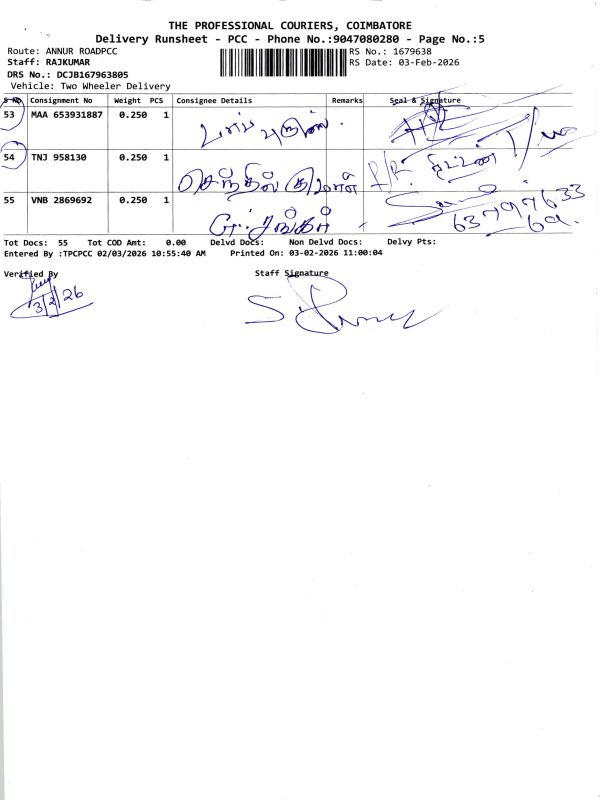 THE PROFESSIONAL COURIERS, COIMBATORE
Delivery Runsheet - PCC - Phone No.:9047080280 - Page No.:5
Route: ANNUR ROADPCC
RS No.: 1679638
Staff: RAJKUMAR
RS Date: 03-Feb-2026
DRS No.: DCJB167963805
Vehicle: Two Wheeler Delivery
S No Consignment No Weight PCS Consignee Details Remarks Seal & Signature
53 MAA 653931887 0.250 1
54 TNJ 958130 0.250 1 செந்தில் குமரன்
55 VNB 2869692 0.250 1
Tot Docs: 55 Tot COD Amt: 0.00 Delvd Docs: Non Delvd Docs: Delvy Pts:
Entered By :TPCPCC 02/03/2026 10:55:40 AM Printed On: 03-02-2026 11:00:04
Verified By Staff Signature
3/2/26